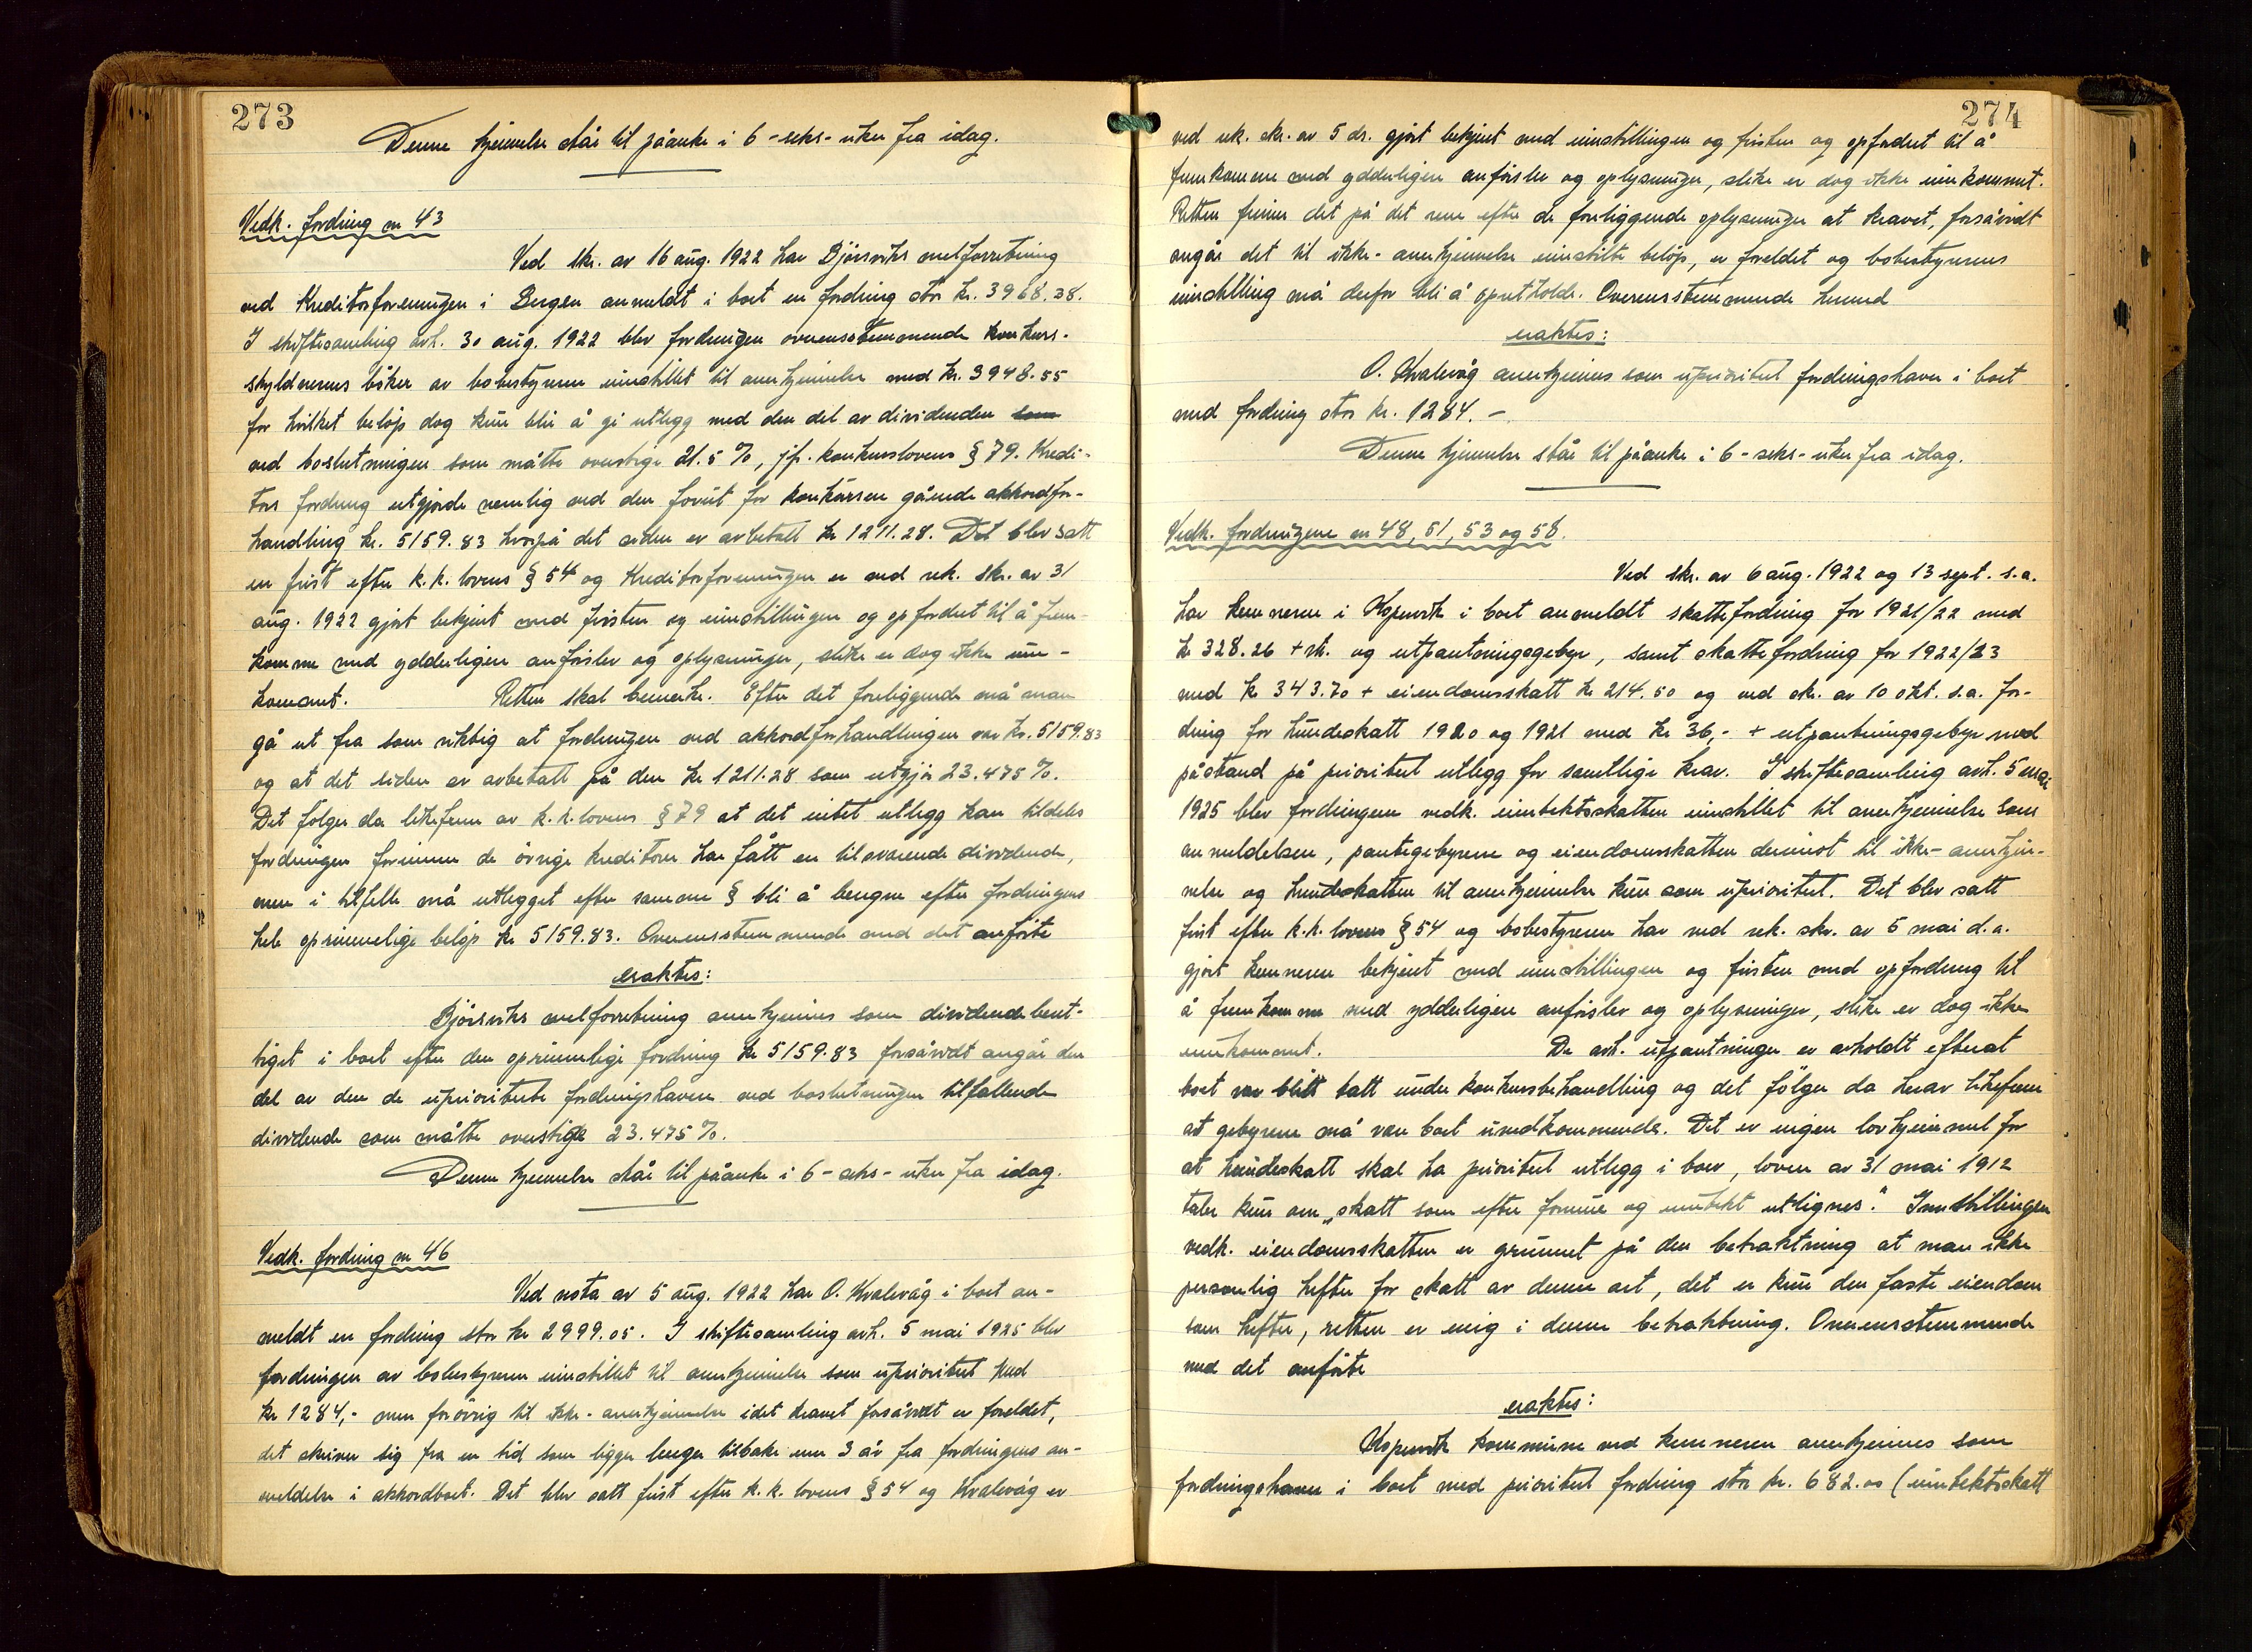 273
Denne kjennelse står til påanke i 6 -seks- uker fra idag.
Vedk. fordring nr 43
Ved skr. av 16 aug. 1922 har Bjørsviks melforretning
ved Kreditorforeningen i Bergen anmeldt i boet en fordring stor kr. 3968.38.
I skiftesamling avh. 30 aug. 1922 blev fordringen overensstemmende konkurs-
skyldnerens bøker av bobestyreren innstillet til anerkjennelse med kr. 3948.55
for hvilket beløp dog kun blir å gi utlegg med den del av dividenden som
ved boslutningen som måtte overstige 21.5 %, jfr. konkurslovens § 79. Kredi-
tors fordring utgjorde nemlig ved den forut for konkursen gående akkordfor-
handling kr. 5159.83 hvorpå det siden er avbetalt kr 1211.28. Det blev satt
en frist efter k.k. lovens § 54 og Kreditorforeningen er ved rek. skr. av 31
aug. 1922 gjort bekjent med fristen og innstillingen og opfordret til å frem-
komme med ydderligere anførsler og oplysninger, slike er dog ikke inn-
kommet. Retten skal bemerke. Efter det foreliggende må man
gå ut fra som riktig at fordringen ved akkordforhandlingen var kr. 5159.83
og at det siden er avbetalt på den kr 1211.28 som utgjør 23.475 %.
Det følger da likefrem av k.k. lovens § 79 at det intet utlegg kan tildeles
fordringen forinnen de øvrige kreditorer har fått en tilsvarende dividende,
men i tilfelle må utlegget efter samme § bli å beregne efter fordringens
hele oprinnelige beløp kr 5159.83. Overensstemmende med det anførte
eraktes:
Bjørsviks melforretning anerkjennes som dividendeberet-
tiget i boet efter den oprinnelige fordring kr 5159.83 forsåvidt angår den
del av den de uprioriterte fordringshavere ved boslutningen tilfallende
dividende som måtte overstige 23.475 %.
Denne kjennelse står til påanke i 6 - seks - uker fra idag.
Vedk. fordring nr 46
Ved nota av 5 aug. 1922 har O. Kvalevåg i boet an-
meldt en fordring stor kr 2999.05. I skiftesamling avh. 5 mai 1925 blev
fordringen av bobestyreren innstillet til anerkjennelse som uprioritert med
kr 1284,- men forøvrig til ikke-anerkjennelse idet kravet forsåvidt er foreldet,
det skriver sig fra en tid som ligger lenger tilbake enn 3 år fra fordringens an-
meldelse i akkordboet. Det blev satt frist efter k.k. lovens § 54 og Kvalevåg er
274
ved rek. skr. av 5 ds. gjort bekjent med innstillingen og fristen og opfordret til å
fremkomme med ydderligere anførsler og oplysninger, slike er dog ikke innkommet.
Retten finner det på det rene efter de foreliggende oplysninger at kravet, forsåvidt
angår det til ikke-anerkjennelse innstilte beløp, er foreldet og bobestyrerens
innstilling må derfor bli å oprettholde. Overensstemmende hermed
eraktes:
O. Kvalevåg anerkjennes som uprioritert fordringshaver i boet
med fordring stor kr. 1284.-
Denne kjennelse står til påanke i 6 - seks - uker fra idag.
Vedk. fordringene nr 48, 51, 53 og 58.
Ved skr. av 6 aug. 1922 og 13 sept. s.a.
har kemneren i Kopervik i boet anmeldt skattefordring for 1921/22 med
kr 328.26 + rk. og utpantningsgebyr, samt skattefordring for 1922/23
med kr 343.70 + eiendomsskatt kr 214.50 og ved skr. av 10 okt. s.a. for-
dring for hundeskatt 1920 og 1921 med kr 36,- + utpantningsgebyr med
påstand på prioritert utlegg for samtlige krav. I skiftesamling avh. 5 mai
1925 blev fordringene vedk. inntektsskatten innstillet til anerkjennelse som
anmeldelsen, pantegebyrene og eiendomsskatten derimot til ikke-anerkjen-
nelse og hundeskatten til anerkjennelse kun som uprioritert. Det blev satt
frist efter k.k. lovens § 54 og bobestyreren har ved rek. skr. av 5 mai d.a.
gjort kemneren bekjent med innstillingen og fristen med opfordring til
å fremkomme med ydderligere anførsler og oplysninger, slike er dog ikke
innkommet. De avh. utpantninger er avholdt efterat
boet var blitt tatt under konkursbehandling og det følger da herav likefrem
at gebyrene må være boet uvedkommende. Det er ingen lovhjemmel for
at hundeskatt skal ha prioritert utlegg i boer, loven av 31 mai 1912
taler kun om „skatt som efter formue og inntekt utlignes." Innstillingen
vedk. eiendomsskatten er grunnet på den betraktning at man ikke
personlig hefter for skatt av denne art, det er kun den faste eiendom
som hefter, retten er enig i denne betraktning. Overensstemmende
med det anførte
eraktes:
Kopervik kommune ved kemneren anerkjennes som
fordringshaver i boet med prioritert fordring stor kr. 682.00 (inntektsskatt